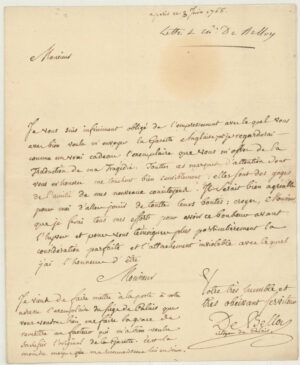 Paris ce 3 Juin 1766
Lettre de M. De Belloy
Monsieur
Je vous suis infiniment obligé de l'empressement avec lequel vous
avez bien voulu m'envoyer la Gazette Anglaise, et je regarderai
comme un vrai cadeau l'exemplaire que vous m'offrez de la
Traduction de ma Tragédie. Toutes ces marques d'attention dont
vous m'honorez me touchent bien sensiblement; elles sont des gages
de l'amitié de mes nouveaux concitoyens. Il est bien agréable
pour moi d'aller jouir de toutes leurs bontés; croyez, Monsieur
que je ferai tous mes efforts pour avoir ce bonheur avant
l'hyver et pour vous témoigner plus particulierement la
considération parfaite et l'attachement inviolable avec lequel
j'ai l'honneur d'être
Monsieur
Votre très humble et
très obéissant serviteur
De Belloy
citoyen de Calais
Je viens de faire mettre à la poste à votre
adresse l'exemplaire du Siege de Calais que
vous voudrez bien me faire la grace de
remettre au facteur qui m'a
l'original de la Gazette. c'est la
moindre marque de ma reconnaissance